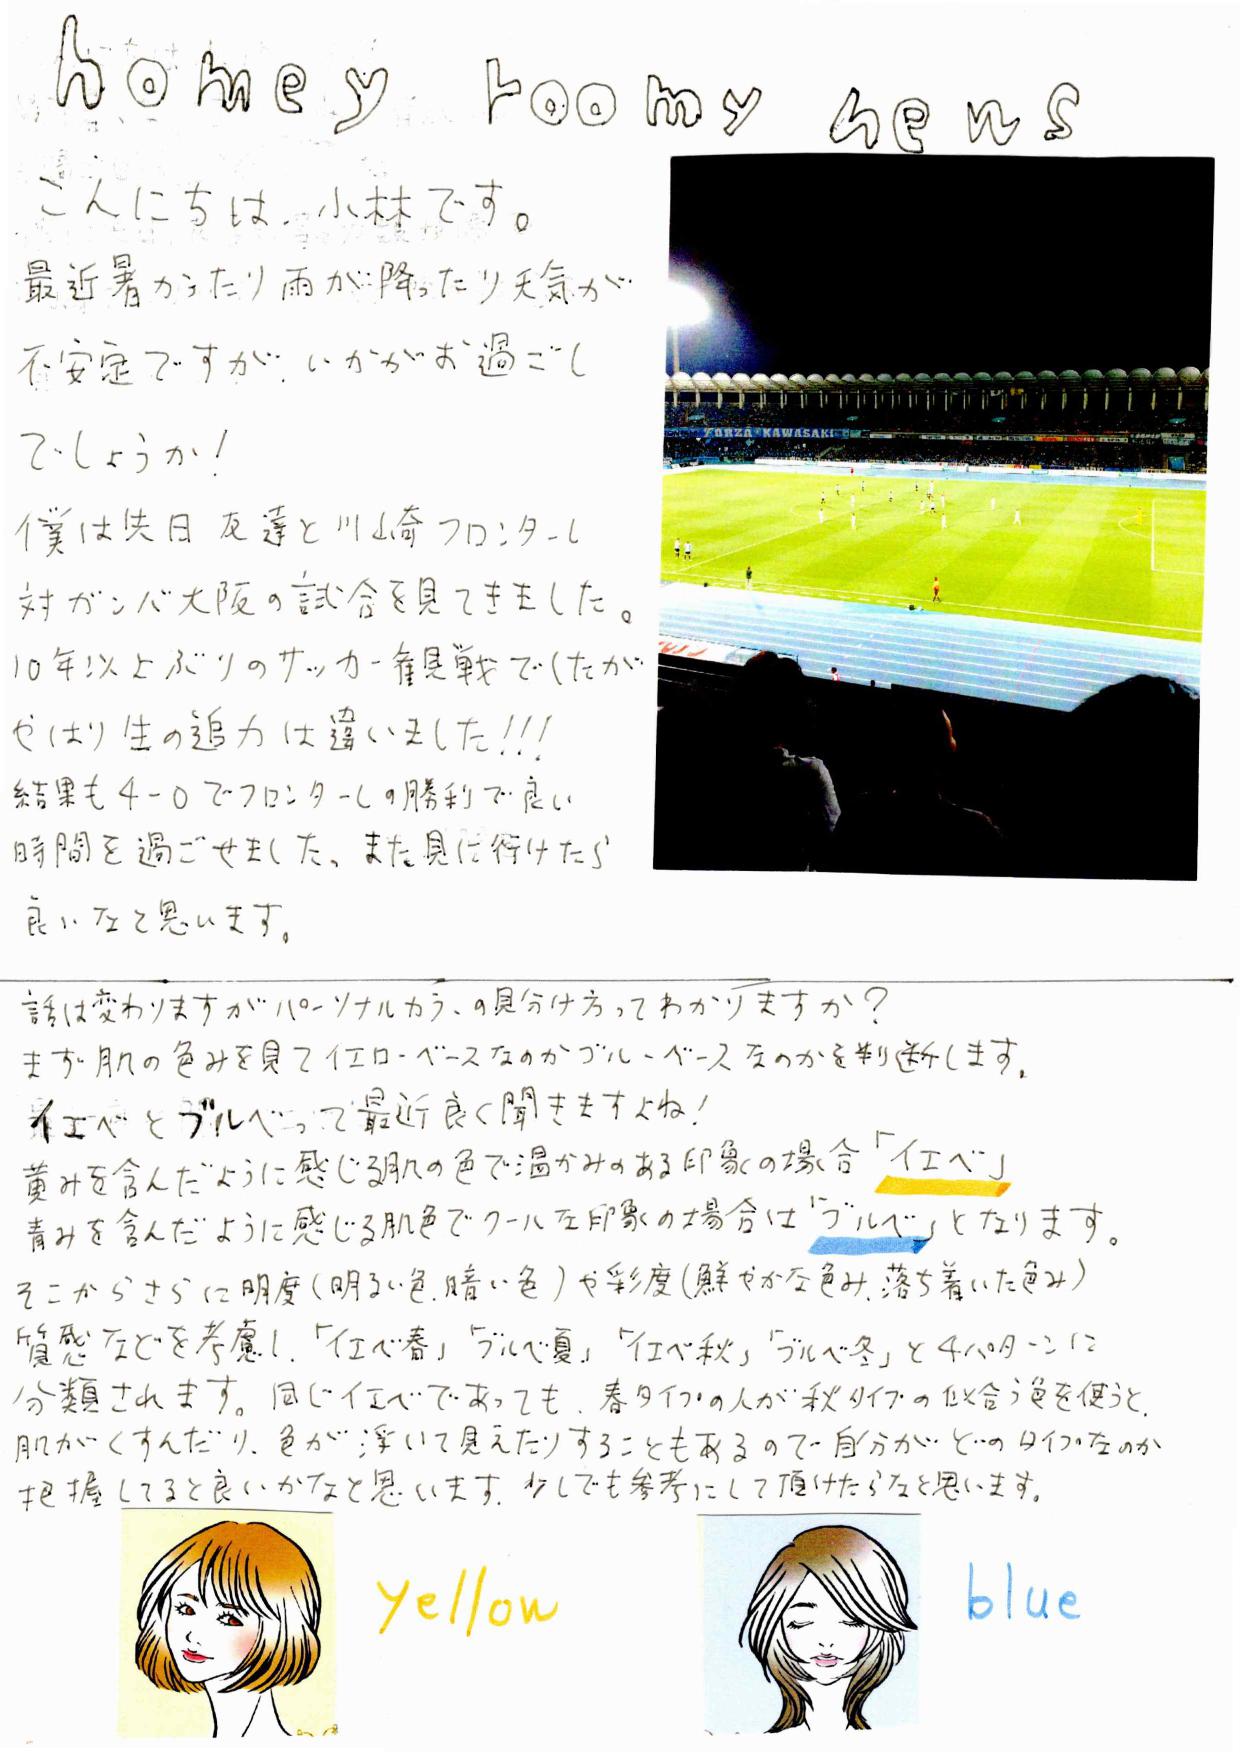 homey roomy news
こんにちは、小林です。
最近暑かったり雨が降ったり天気が
不安定ですが、いかがお過ごし
でしょうか!
僕は先日 友達と川崎フロンターレ
対ガンバ大阪の試合を見てきました。
10年以上ぶりのサッカー観戦でしたが
やはり生の迫力は違いました!!!
結果も4-0でフロンターレの勝利で良い
時間を過ごせました、また見に行けたら
良いなと思います。
FORZA KAWASAKI
話は変わりますがパーソナルカラーの見分け方ってわかりますか?
まず肌の色みを見てイエローベースなのかブルーベースなのかを判断します。
イエベとブルベって最近良く聞きますよね!
黄みを含んだように感じる肌の色で温かみのある印象の場合「イエベ」
青みを含んだように感じる肌色でクールな印象の場合は「ブルベ」となります。
そこからさらに明度(明るい色、暗い色)や彩度(鮮やかな色み、落ち着いた色み)
質感などを考慮し、「イエベ春」「ブルベ夏」「イエベ秋」「ブルベ冬」と4パターンに
分類されます。同じイエベであっても、春タイプの人が秋タイプの似合う色を使うと、
肌がくすんだり、色が浮いて見えたりすることもあるので自分がどのタイプなのか
把握してると良いかなと思います。少しでも参考にして頂けたらなと思います。
yellow
blue